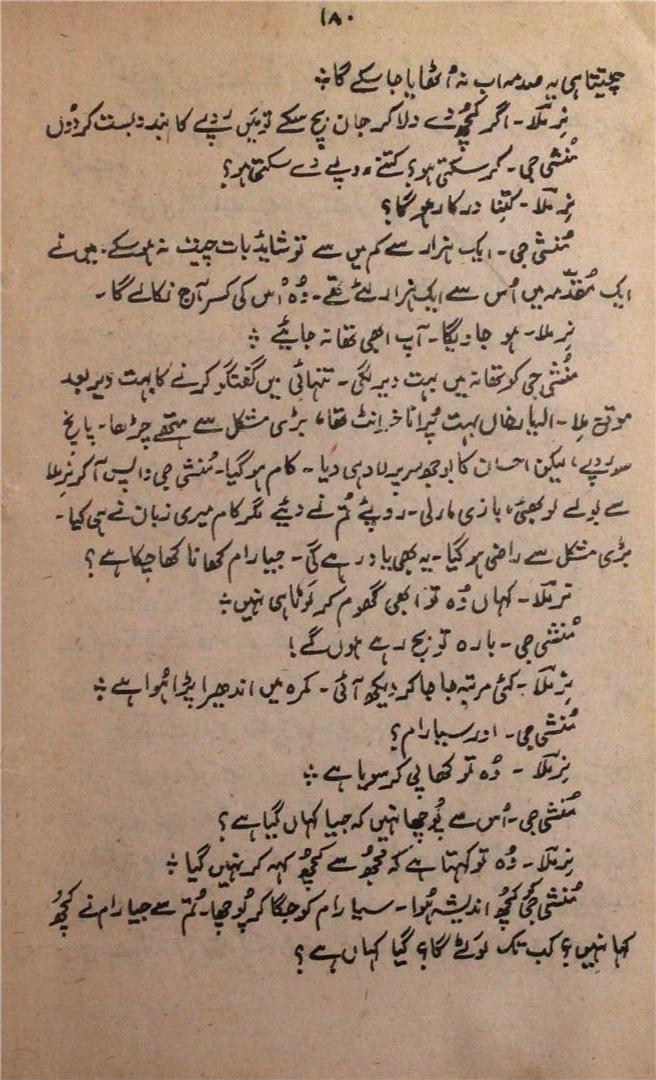 ۱۸۰
چیتیتا ہی یہ صدمہ اب نہ اُٹھایا جا سکے گا ÷
نِرملا۔ اگر کچھ دے دلا کر جان بچ سکے تو میَں روپے کا بندوبست کر دُوں
مُنشی جی۔ کر سکتی ہو؟ کتنے روپے دے سکتی ہو؟
نِرملا۔ کِتنا درکار ہو گا؟
مُنشی جی۔ ایک ہزار سے کم میں سے تو شاید بات چیت نہ ہو سکے۔ میں نے
ایک مُقدّمہ میں اُس سے ایک ہزار لئے تھے۔ وُہ اُس کی کسر آج نکالے گا۔
نِرملا۔ ہو جاویگا۔ آپ ابھی تھانہ جایئے ÷
مُنشی جی کو تھانہ میں بہت دیر لگی۔ تنہائی میں گفتگو کرنے کا بہت دیر بعد
موقع مِلا۔ الہ یار خاں بہت پُرانا خرانٹ تھا، بڑی مشکل سے ہتھے چڑھا۔ پانچ
سو روپے، لیکن احسان کا بوجھ سر پر لاد ہی دیا۔ کام ہو گیا۔ مُنشی جی واپس آ کر نِرملا
سے بولے لو بھئی، بازی مار لی۔ روپئے تُم نے دیئے مگر کام میری زبان نے ہی کیا۔
بڑی مشکل سے راضی ہو گیا۔ یہ بھی یاد رہے گی۔ جیا رام کھانا کھا چکا ہے؟
نِرملا۔ کہاں وُہ تو ابھی گھوم کر لَوٹا ہی نہیں ÷
مُنشی جی۔ بارہ تو بج رہے ہوں گے!
نِرملا۔ کئی مرتبہ جا جا کر دیکھ آئی۔ کمرہ میں اندھیرا پڑا ہُوا ہے ÷
مُنشی جی۔ اور سیا رام؟
نِرملا۔ وُہ تو کھا پی کر سویا ہے ÷
مُنشی جی۔ اُس سے پُوچھا نہیں کہ جیا کہاں گیا ہے؟
نِرملا۔ وُہ تو کہتا ہے کہ مجُھ سے کچُھ کہہ کر نہیں گیا ÷
مُنشی جی کو کچُھ اندیشہ ہُوا۔ سیا رام کو جگا کر پُوچھا۔ تُم سے جیا رام نے کچُھ
کہا نہیں؟ کب تک لَوٹے گا؟ گیا کہاں ہے؟